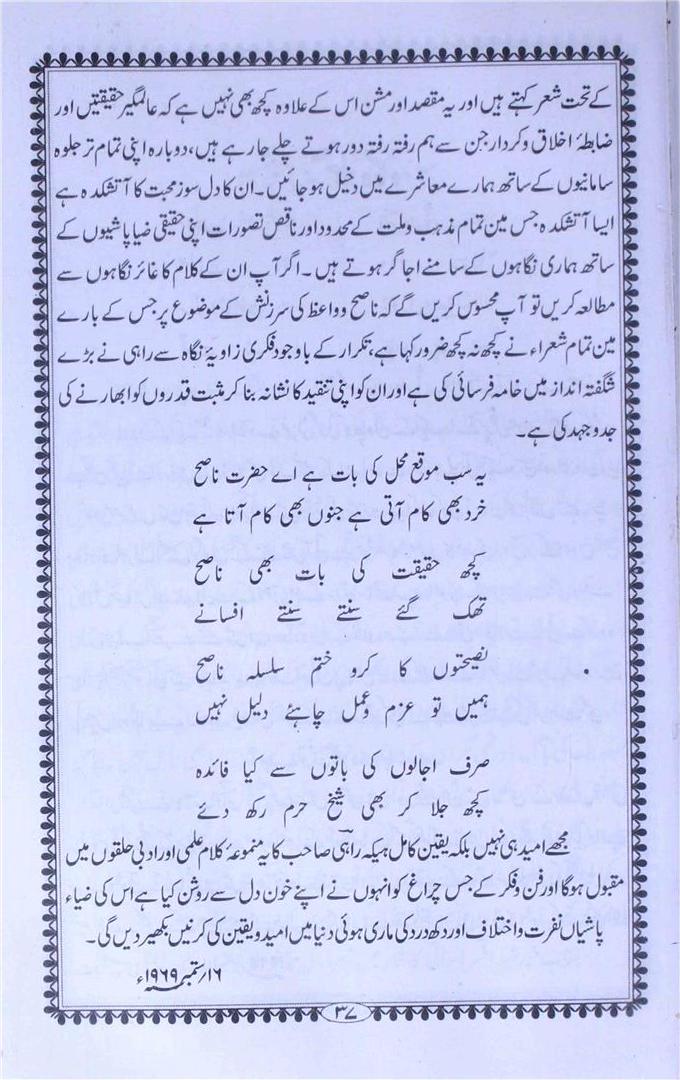 کے تحت شعر کہتے ہیں اور یہ مقصد اور مشن اس کے علاوہ کچھ بھی نہیں ہے کہ عالمگیر حقیقتیں اور
ضابطۂ اخلاق و کردار جن سے ہم رفتہ رفتہ دور ہوتے چلے جا رہے ہیں، دوبارہ اپنی تمام تر جلوہ
سامانیوں کے ساتھ ہمارے معاشرے میں دخیل ہو جائیں۔ ان کا دل سوز محبت کا آتشکدہ ہے
ایسا آتشکدہ جس مین تمام مذہب و ملت کے محدود اور ناقص تصورات اپنی حقیقی ضیا پاشیوں کے
ساتھ ہماری نگاہوں کے سامنے اجاگر ہوتے ہیں۔ اگر آپ ان کے کلام کا غائر نگاہوں سے
مطالعہ کریں تو آپ محسوس کریں گے کہ ناصح و واعظ کی سرزنش کے موضوع پر جس کے بارے
مین تمام شعراء نے کچھ نہ کچھ ضرور کہا ہے، تکرار کے باوجود فکری زاویۂ نگاہ سے راہی نے بڑے
شگفتہ انداز میں خامہ فرسائی کی ہے اور ان کو اپنی تنقید کا نشانہ بنا کر مثبت قدروں کو ابھارنے کی
جدوجہد کی ہے۔
یہ سب موقع محل کی بات ہے اے حضرت ناصح
خرد بھی کام آتی ہے جنوں بھی کام آتا ہے
کچھ حقیقت کی بات بھی ناصح
تھک گئے سنتے سنتے افسانے
نصیحتوں کا کرو ختم سلسلہ ناصح
ہمیں تو عزم عمل چاہئے دلیل نہیں
صرف اجالوں کی باتوں سے کیا فائدہ
کچھ جلا کر بھی شیخ حرم رکھ دئے
مجھے امید ہی نہیں بلکہ یقین کامل ہیکہ راہیؔ صاحب کا یہ مجموعۂ کلام علمی اور ادبی حلقوں میں
مقبول ہوگا اور فن و فکر کے جس چراغ کو انہوں نے اپنے خون دل سے روشن کیا ہے اس کی ضیاء
پاشیاں نفرت و اختلاف اور دکھ درد کی ماری ہوئی دنیا میں امید و یقین کی کرنیں بکھیر دیں گی۔
۱۶؍ ستمبر ۱۹۶۹ء
۳۷